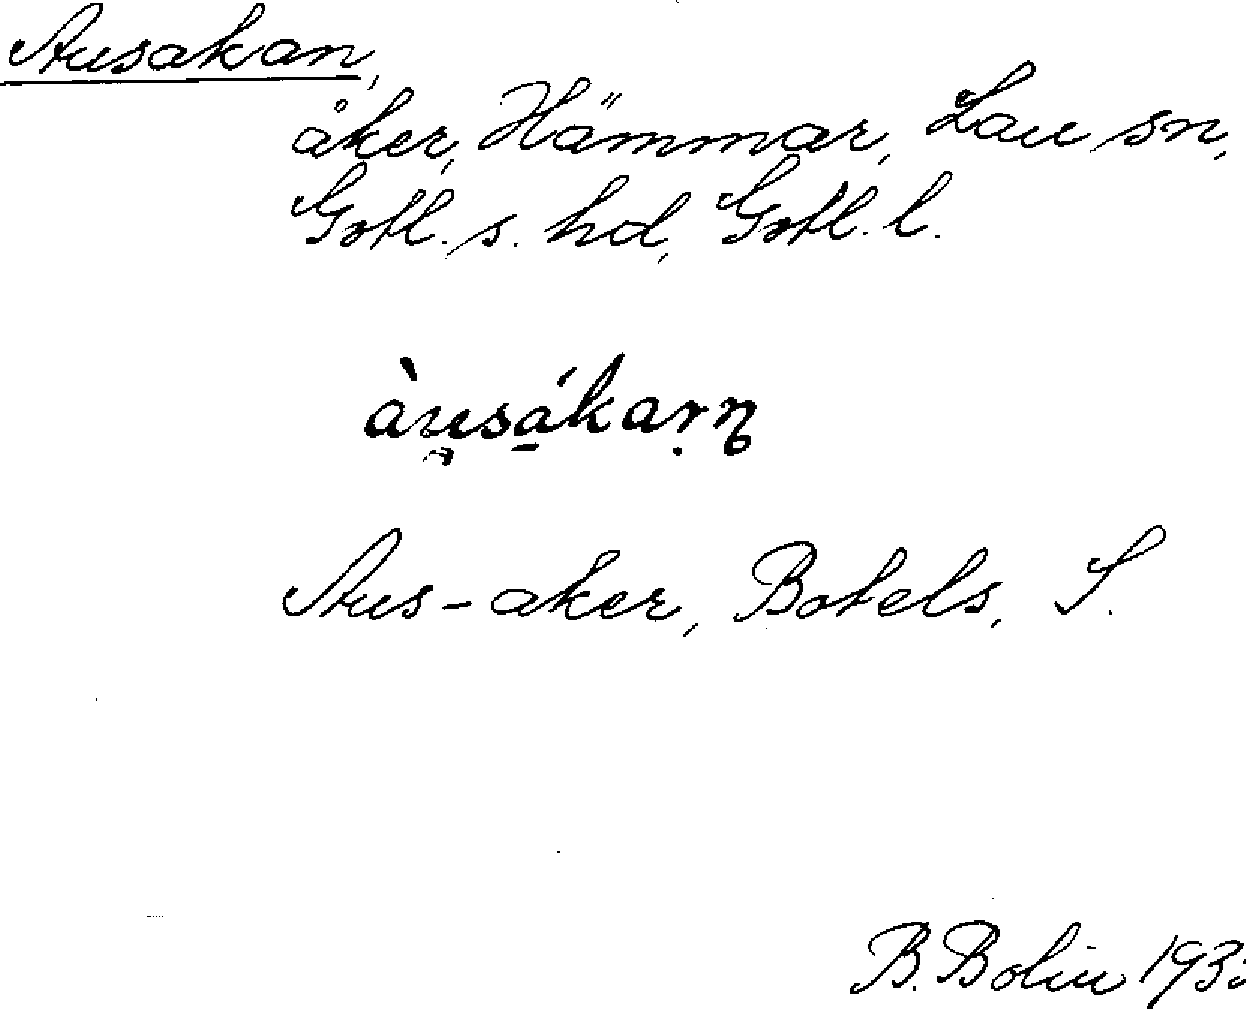 Ausakan,
åker, Hämmar, Lau sn,
Gotl. s. hd, Gotl. l.
àu̯sá̠kaṛn
Aus-aker, Botels, S.
B. Bolin